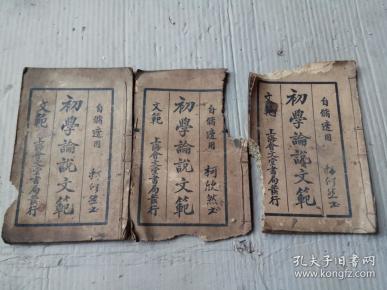 自脩適用
初學論說文範
文範 上海會文堂書局發行
自脩適用
初學論說文範
文範
上海會文堂書局發行
柯欣然玉
自脩適用
初學論說文範
文範
上海會文堂書局發行
孔夫子旧书网